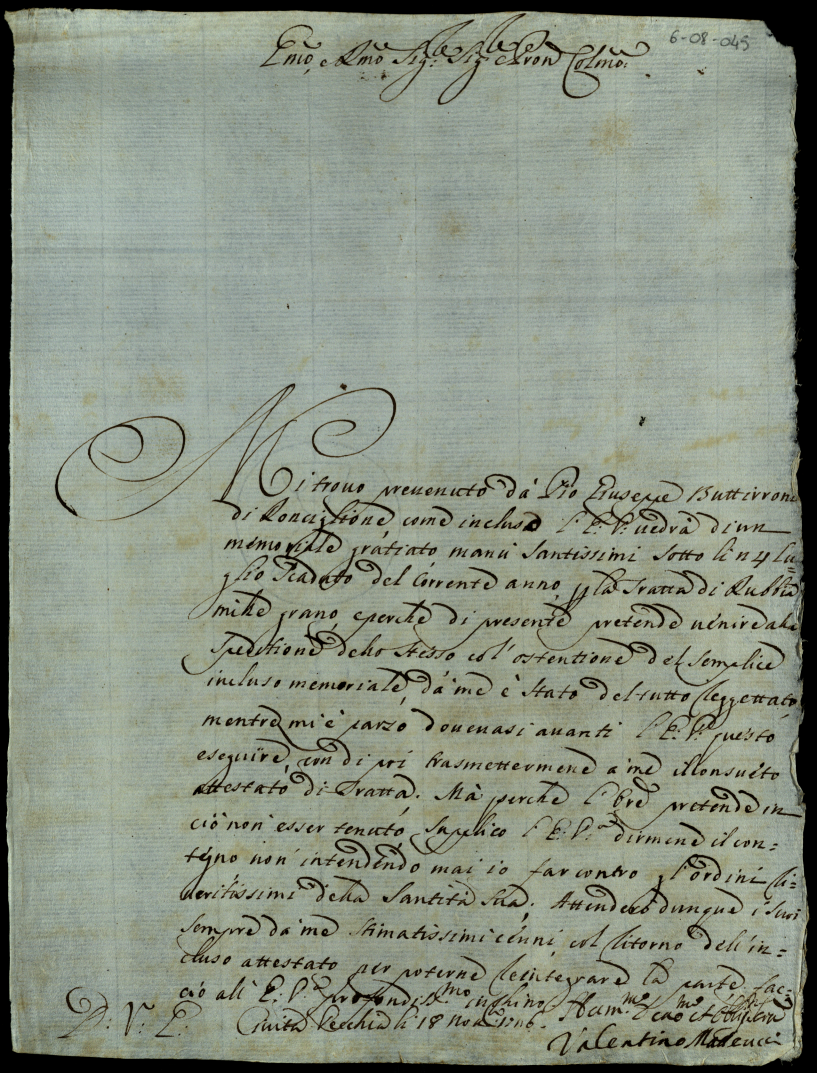 6-08-045
Emo, e Rmo Sig:re Sig:re e Pron Colmo:
Mi trovo prevenuto dà Pio Giuseppe Buttirrone
di Ronciglione come incluso l'E. V. vedrà di un
memoriale gratiato manu Santissimi sotto li n 4 Lu=
glio scaduto del Corrente anno p la Tratta di Rubbia
mille grano, e perche di presente pretende venire alla
Speditione dello stesso col' ostentione del semplice
incluso memoriale, dà me è stato del tutto reggettato,
mentre mi è parso dovevasi avanti l'E. V. questo
eseguire, con di poi trasmettermene a me il consueto
attestato di Tratta. Mà perche l'Ore pretende in
ciò non esser tenuto, suplico l'E. V.ra dirmene il con=
tegno non' intendendo mai io far contro gl'ordini ri=
veritissimi della Santità Sua; Attenderò dunque i suoi
sempre da me stimatissimi cenni col ritorno dell'in=
cluso attestato per poterne reintegrare la parte, fac=
cio all' E. V.ra profondiss.mo inchino
D: V: E. Civita Vecchia li 18 Nov.re
Valentino Matteucci